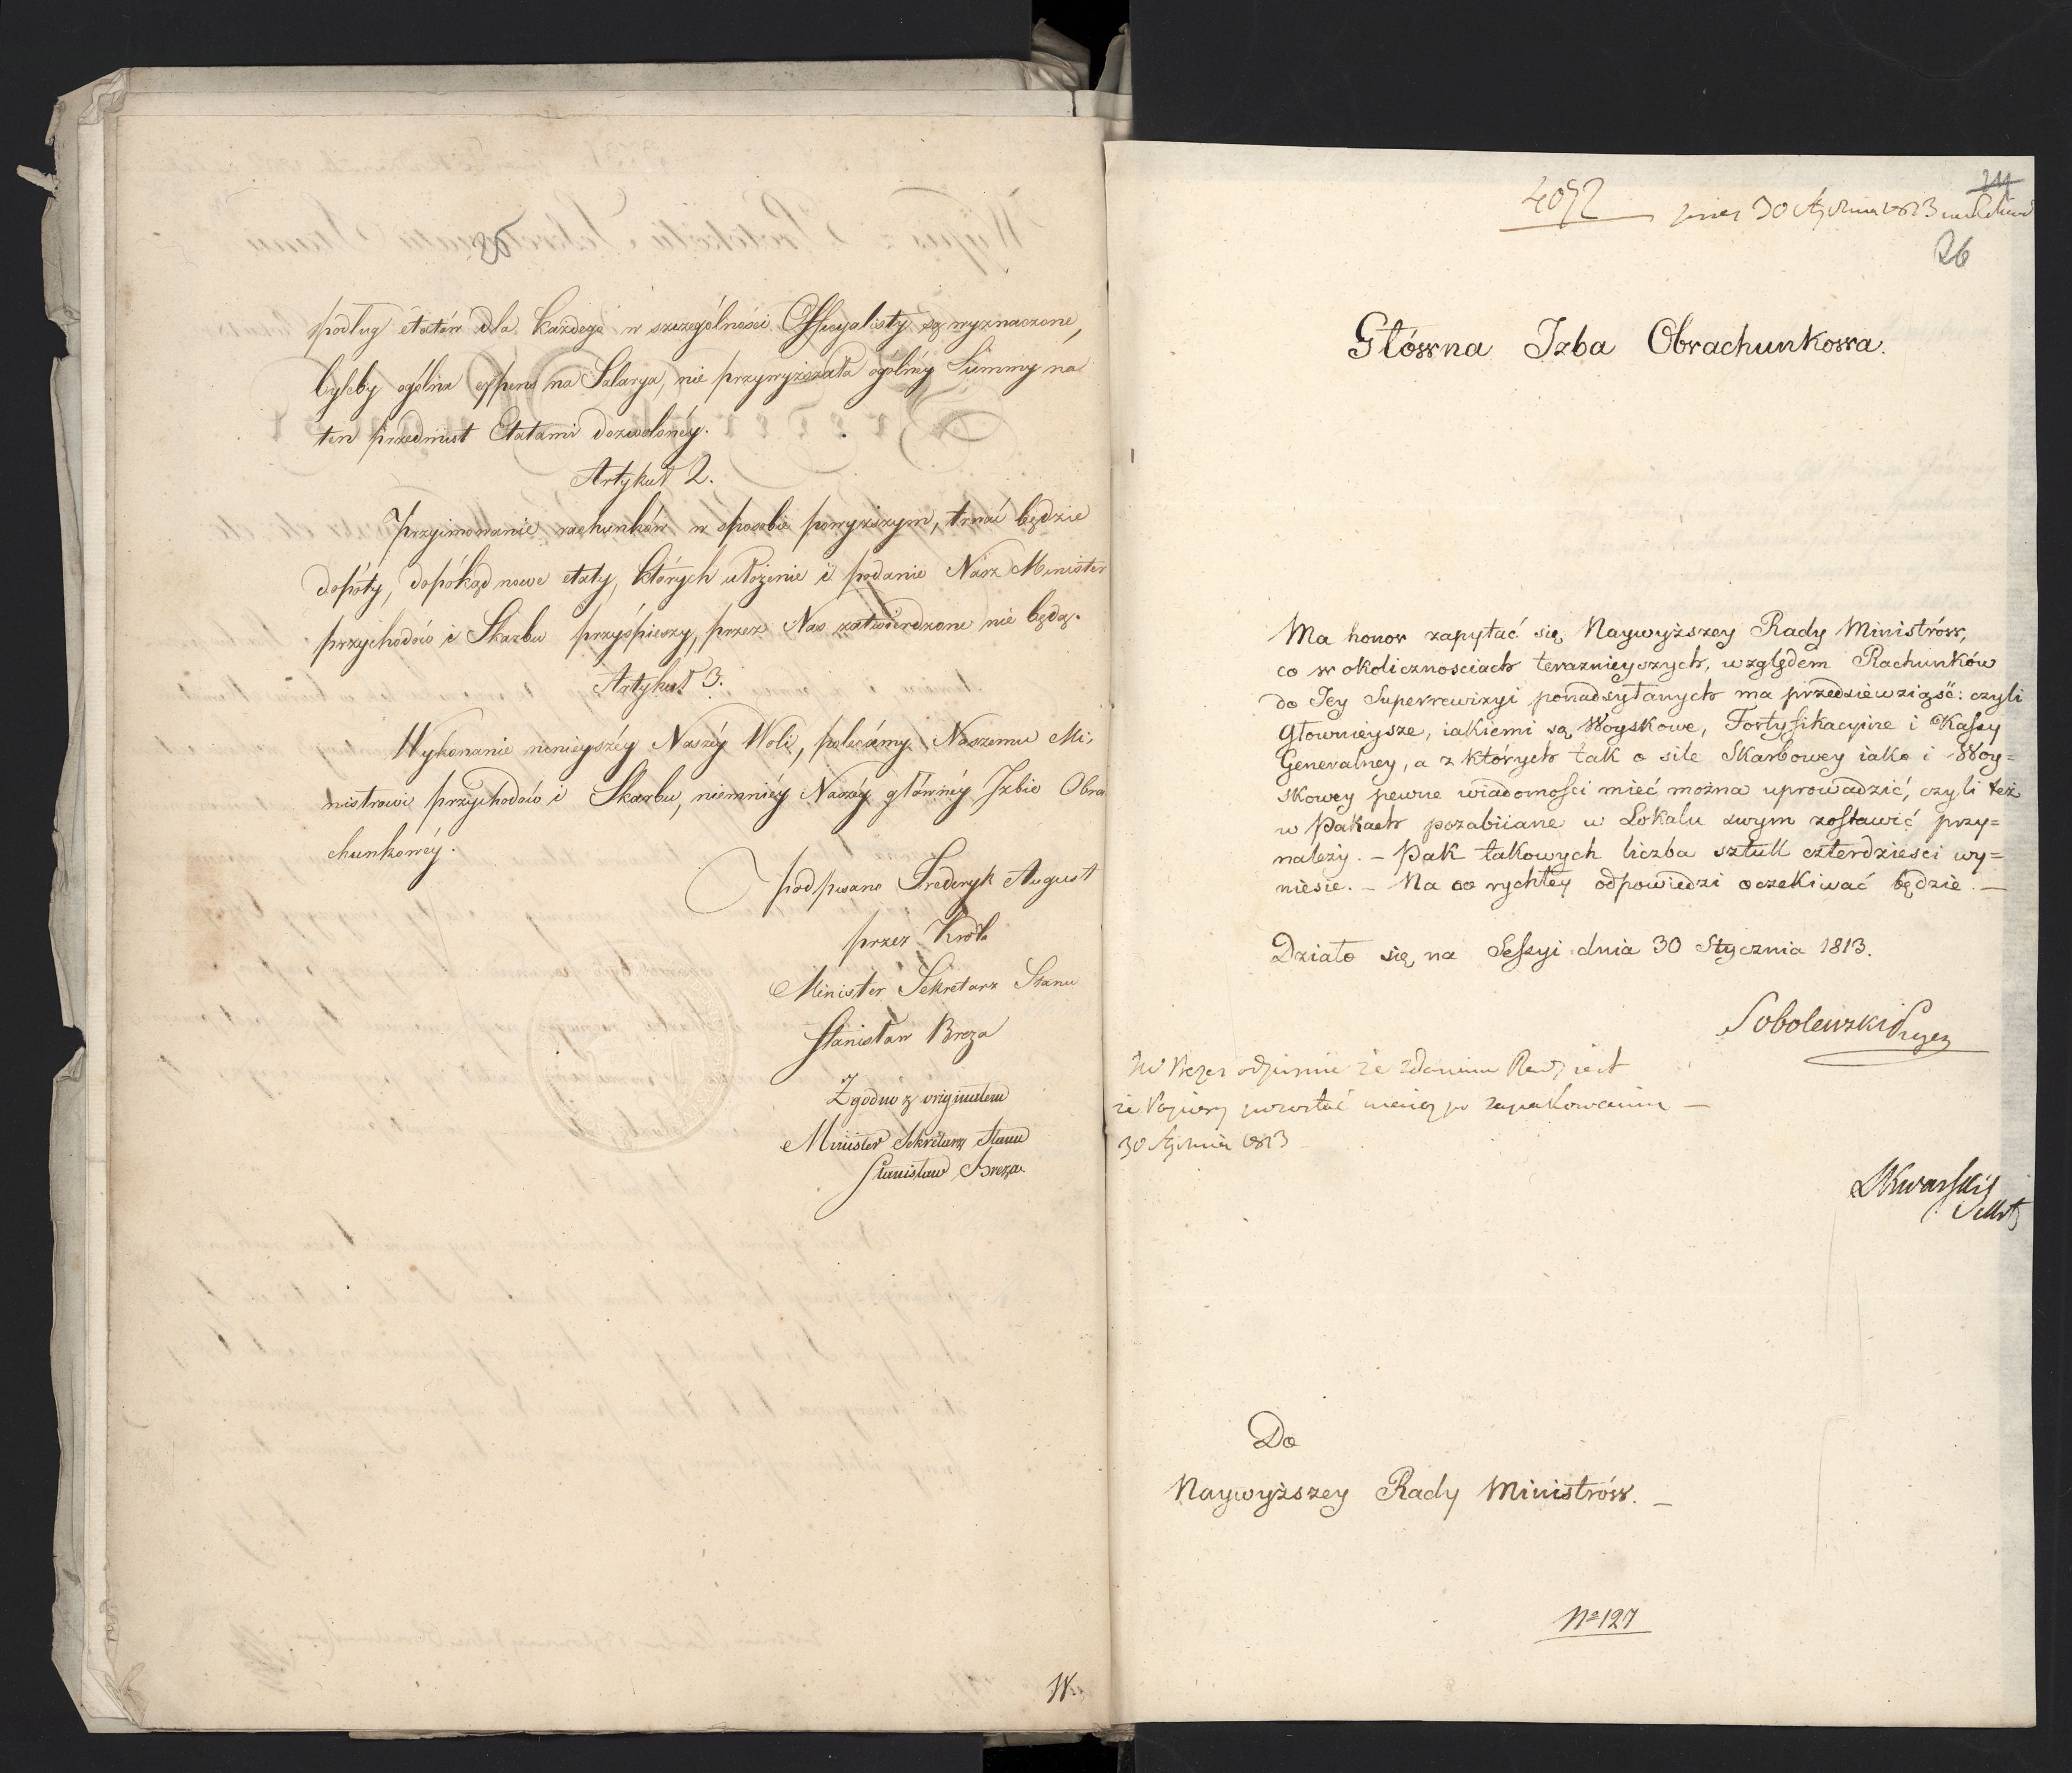 podług etatów dla każdego w szczególności Officyalisty są wyznaczone,
byleby ogólna expens na Salarya, nie przewyższała ogólnéy Summy na
ten przedmiot Etatami dozwolonéy.
Artykuł 2.
Przyimowanie rachunków w sposobie powyższym, trwać będzie
dopóty, dopókąd nowe etaty, których ułożenie i podanie Nasz Minister
przychodów i Skarbu przyśpieszy, przez Nas zatwierdzone nie będą.
Artykuł 3.
Wykonanie ninieyszéy Naszéy Woli, polecamy Naszemu Mi,
nistrowi przychodów i Skarbu, niemniéy Naszéy głównéy Izbie Obra
chunkowéy.
podpisano Frederyk August
przez Króla
Minister Sekretarz Stanu
Stanisław Breza
Zgodno z originałem
Minister Sekretarz Stanu
Stanisław Breza
W.
4092 30 Stycznia 1813
24
26
Główna Izba Obrachunkowa.
Ma honor zapytać się Naywyższey Rady Ministrów,
co w okolicznosciach teraznieyszych, względem Rachunków
do Jey Superrewizyi ponadsyłanych ma przedsiewziąść: czyli
głownieysze, iakiemi są Woyskowe, Fortyfikacyine i Kassy
Generalney, a z których tak o sile Skarbowey iako i Woy=
skowey pewne wiadomości mieć można uprowadzić, czyli też
w Pakach pozabiiane w Lokalu swym zostawić przy=
należy. – Pak takowych liczba sztuk czterdzieści wy=
niesie. – Na co rychłey odpowiedzi oczekiwać będzie. –
Działo się na Sessyi dnia 30 Stycznia 1813.
Sobolewski Prezes
JW Prezes że zdaniem Rady iest
że Papiery pozostać po zapakowaniu –
30 Stycznia 1813
Do
Naywyższey Rady Ministrów. –
No 127